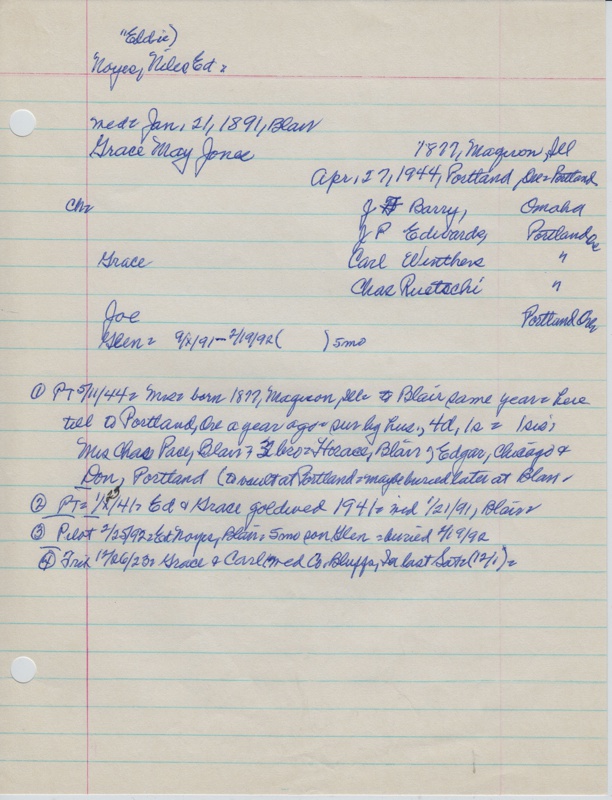 "Eddie)
Noyes, Niles Ed =
med = Jan, 21, 1891, Blair
Grace May Jones 1877, Magnon, Ill
Apr, 27, 1944, Portland, Ore = Portland
Ch = J F Barry, Omaha
J P Edwards, Portland Ore
Grace Carl Winthers "
Chas Ruetschi "
Joe Portland Ore
Glen = 9/x/91 - 2/19/92 ( ) 5mo
① PT 5/11/44 = Mrs = born 1877, Magnon, Ill = to Blair same year = here
till to Portland, Ore a year ago = sur by hus, 4d, 1s = 1 sis;
Mrs Chas Pace, Blair; 3 bros = Horace, Blair; Edgar, Chicago &
Don, Portland (to vault at Portland = maybe buried later at Blair =
② PT = 1/23/41 = Ed & Grace goldwed 1941 = md 1/21/91, Blair =
③ Pilot 2/25/92 = Ed Noyes, Blair = 5mo son Glen = buried 2/19/92
④ Trib 12/06/23 = Grace & Carl med Co. Bluffs, Ia last Sat = (12/1) =